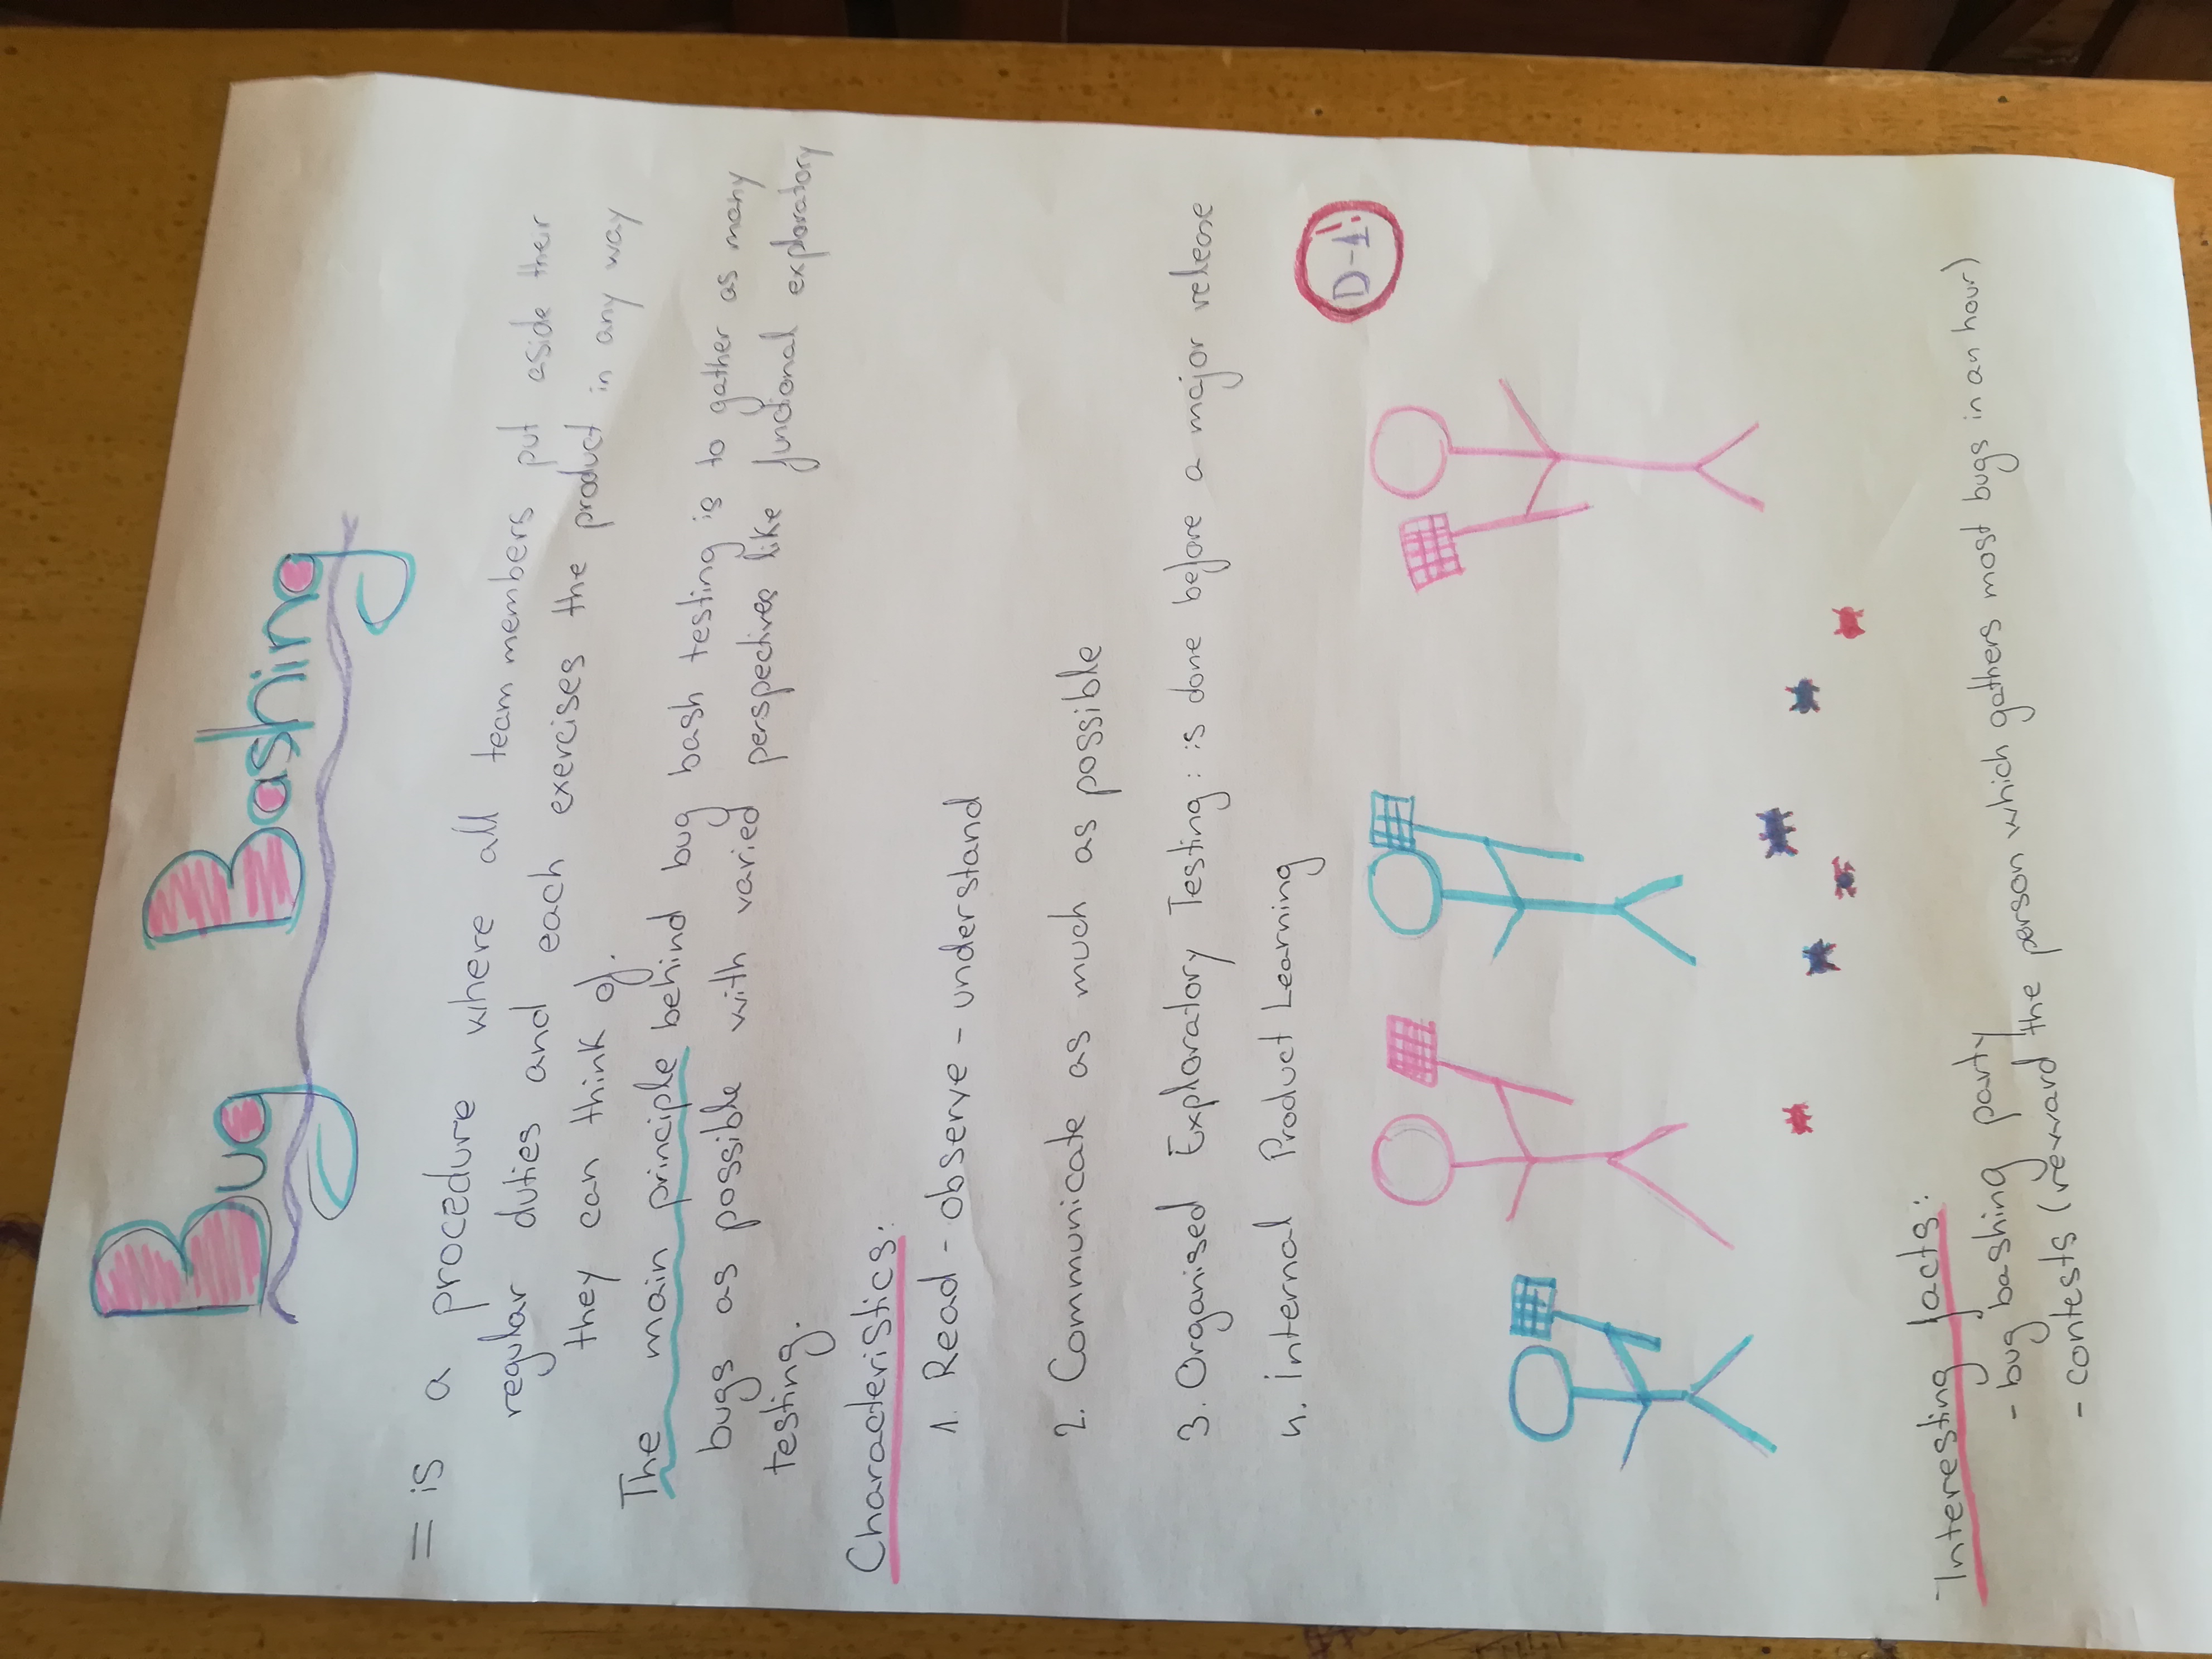 Bug Bashing
= is a procedure where all team members put aside their
regular duties and each exercises the product in any way
they can think of.
The main principle behind bug bash testing is to gather as many
bugs as possible with varied perspectives like functional exploratory
testing.
Characteristics:
1. Read - observe - understand
2. Communicate as much as possible
3. Organised Exploratory Testing : is done before a major release
4. internal Product Learning
D-1!
Interesting facts:
- bug bashing party
- contests (reward the person which gathers most bugs in an hour)